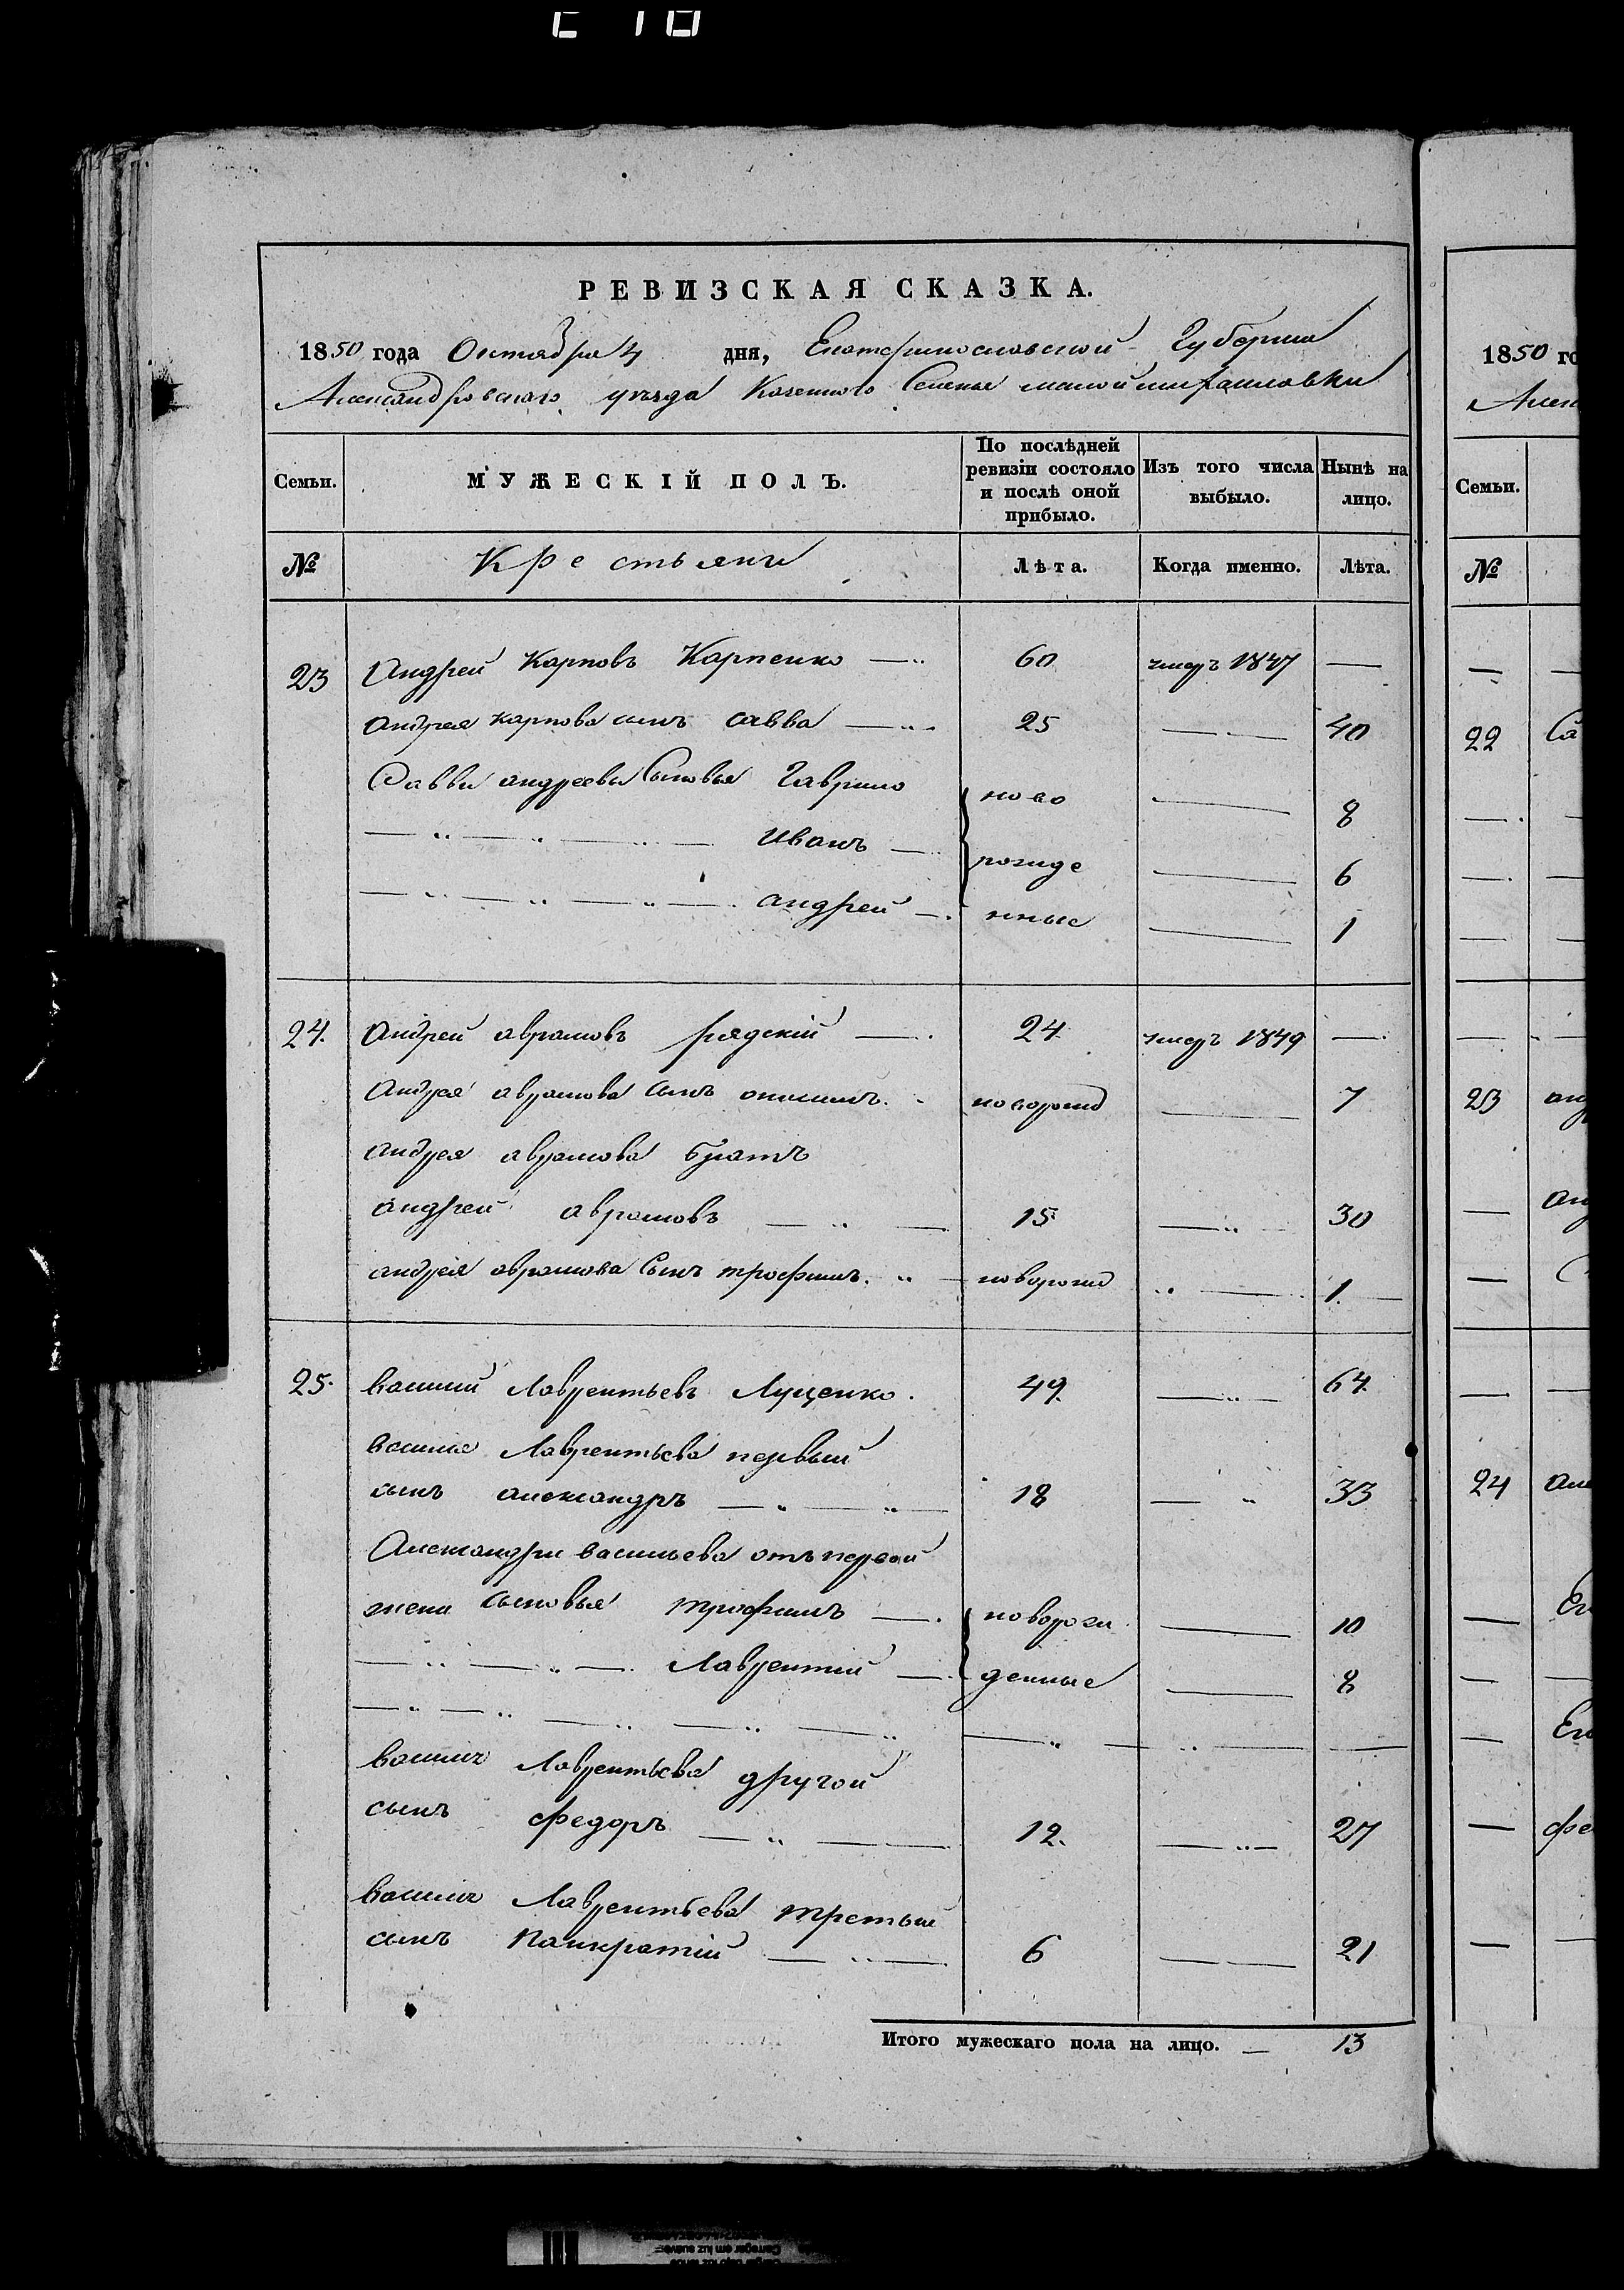 РЕВИЗСКАЯ СКАЗКА.
1850 года Октября 4 дня, Екатеринославской Губернии
Александровского уезда Казенного Селенья малой михайловки
Семьи. МУЖЕСКІЙ ПОЛЪ. По послѣдней ревизіи состояло и послѣ оной прибыло. Изъ того числа выбыло. Нынѣ на лицо.
№ Крестьяне Лѣта. Когда именно. Лѣта.
23 Андрей Карповъ Карпенко — 60 умеръ 1847 —
андрея карпова сынъ савва — 25 — 40
Саввы андреевы Сыновья Гаврило ново — 8
Иванъ — рожде — 6
андрей — нные — 1
24. андрей аврамовъ рядскій — 24 умеръ 1849 —
андрея аврамова сынъ новорожд — 7
андрея аврамова братъ
андрей аврамовъ — 15 — 30
андрея аврамова Сынъ трофимъ. новорожд — 1.
25. василий Лаврентьевъ Луценко. 49. — 64
василия Лаврентьева первый
сынъ александръ — 18 — 33
Александры васильева отъ первой
жены сыновья трофимъ — новорож — 10
Лаврентий — денные — 8
василия Лаврентьева другой
сынъ федоръ — 12. — 27
василия Лаврентьева третьий
сынъ Панкратій — 6 — 21
Итого мужескаго пола на лицо. — 13
1850 го
Семьи.
№
22 Са
23 анд
анд
24
фе